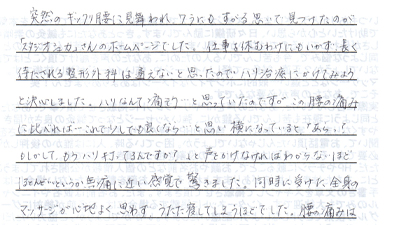 突然のギックリ腰に見舞われ、ワラにもすがる思いで見つけたのが
「スタジオシュカ」さんのホームページでした。仕事を休むわけにもいかず、長く
待たされる整形外科は通えないと思ったのでハリ治療にかけてみよう
と決心しました。ハリなんて痛そう…と思っていたのですがこの腰の痛み
に比べれば…これで少しでも良くなら…と思い横になっていると「あら、?
もしかして、もうハリ打ってるんですか?」と声をかけなければわからないほど
ほとんどというか無痛に近い感覚で驚きました。同時に受けた全身の
マッサージが心地よく、思わずうたた寝してしまうほどでした。腰の痛みは